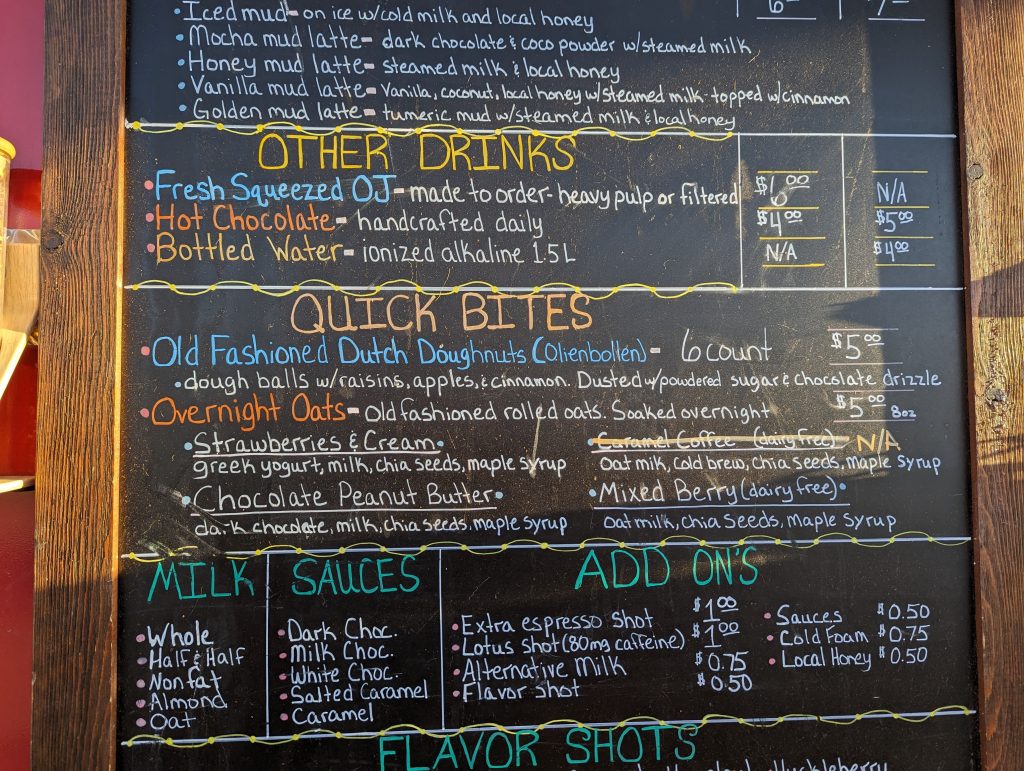 • Iced mud - on ice w/cold milk and local honey
• Mocha mud latte - dark chocolate & coco powder w/steamed milk
• Honey mud latte - steamed milk & local honey
• Vanilla mud latte - Vanilla, coconut, local honey w/steamed milk - topped w/cinnamon
• Golden mud latte - tumeric mud w/steamed milk & local honey
OTHER DRINKS
• Fresh Squeezed OJ - made to order - heavy pulp or filtered $6.00 N/A
• Hot Chocolate - handcrafted daily $4.00 $5.00
• Bottled Water - ionized alkaline 1.5L N/A $4.00
QUICK BITES
• Old Fashioned Dutch Doughnuts (Olienbollen) - 6 count $5.00
• dough balls w/raisins, apples, & cinnamon. Dusted w/powdered sugar & chocolate drizzle
• Overnight Oats - Old fashioned rolled oats. Soaked overnight $5.00 8oz
• Strawberries & Cream •
greek yogurt, milk, chia seeds, maple syrup
• Caramel Coffee (dairy free) N/A
Oat milk, cold brew, chia seeds, maple syrup
• Chocolate Peanut Butter •
dark chocolate, milk, chia seeds, maple syrup
• Mixed Berry (dairy free) •
Oat milk, chia seeds, maple syrup
MILK
• Whole
• Half & Half
• Nonfat
• Almond
• Oat
SAUCES
• Dark Choc.
• Milk Choc.
• White Choc.
• Salted Caramel
• Caramel
ADD ON'S
• Extra espresso shot $1.00
• Lotus shot (80mg caffeine) $1.00
• Alternative milk $0.75
• Flavor shot $0.50
• Sauces $0.50
• Cold Foam $0.75
• Local Honey $0.50
FLAVOR SHOTS